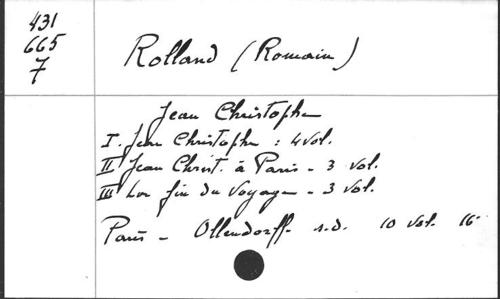 431
665
7
Rolland (Romain)
Jean Christophe
I. Jean Christophe : 4 vol.
II Jean Christ. à Paris - 3 vol.
III La fin du Voyage - 3 vol.
Paris - Ollendorff. s.d. 10 vol. 16°